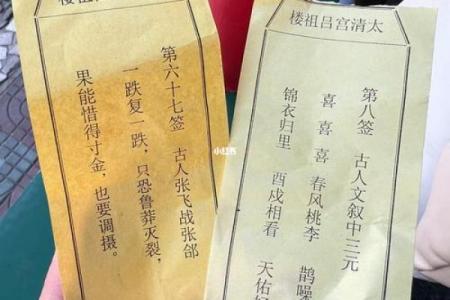 祖楼
第六十七签 古人张飞战张郃
一跌复一跌，只恐鲁莽灭裂，
果能惜得寸金，也要调摄。
太清宫吕祖楼
第八签 古人文叙中三元
喜喜喜 春风桃李 鹊噪
锦衣归里 酉戌相看 天佑
小红书